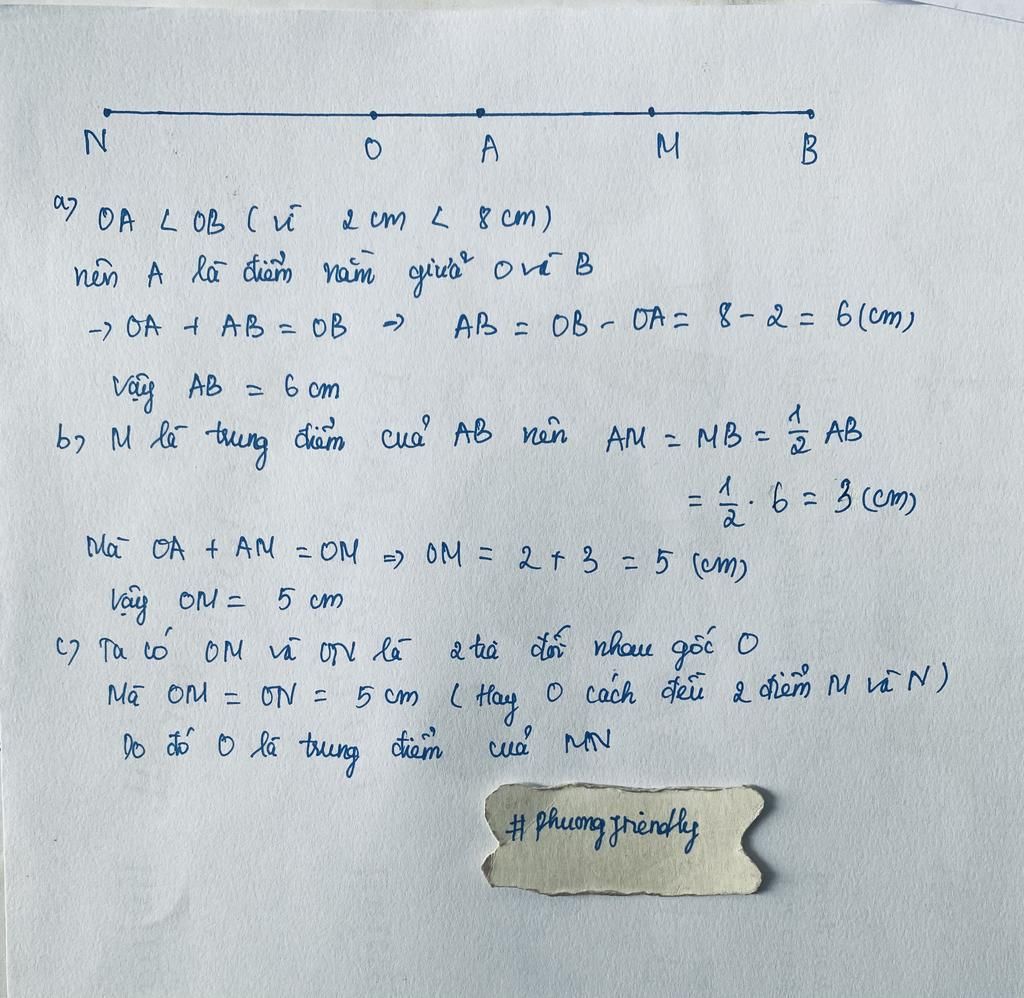 N O A M B
a) OA < OB (vì 2 cm < 8 cm)
nên A là điểm nằm giữa O và B
-> OA + AB = OB => AB = OB - OA = 8 - 2 = 6 (cm)
Vậy AB = 6 cm
b) M là trung điểm của AB nên AM = MB = 1/2 AB
= 1/2 . 6 = 3 (cm)
Mà OA + AM = OM => OM = 2 + 3 = 5 (cm)
Vậy OM = 5 cm
c) Ta có OM và ON là 2 tia đối nhau gốc O
Mà OM = ON = 5 cm (Hay O cách đều 2 điểm M và N)
Do đó O là trung điểm của MN
# phuongfriendly